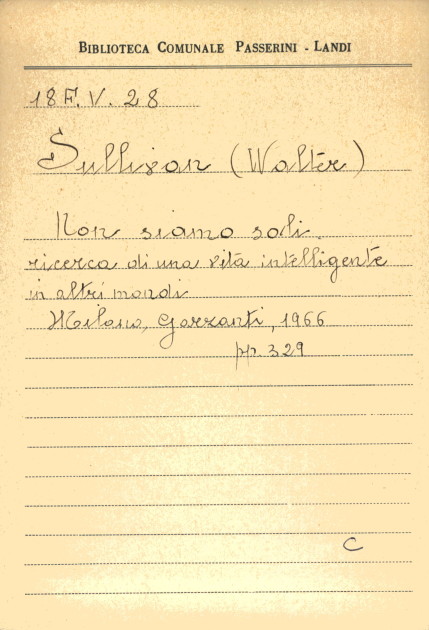 BIBLIOTECA COMUNALE PASSERINI - LANDI
18 F. V. 28
Sullivan (Walter)
Non siamo soli.
ricerca di una vita intelligente
in altri mondi
Milano, Garzanti, 1966
pp. 329
C